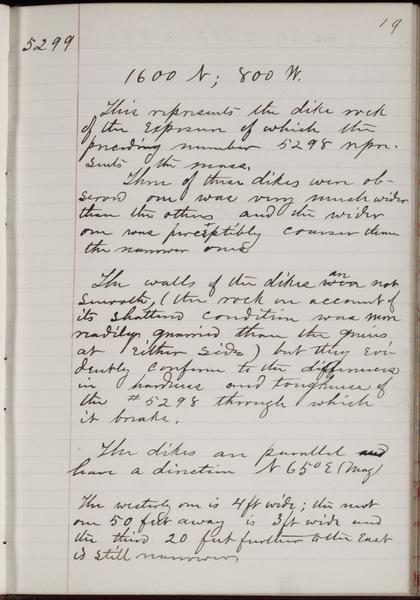 19
5299
1600 N; 800 W.
This represents the dike rock
of the exposure of which the
preceding number 5298 repre-
sents the mass.
Three of these dikes were ob-
served one was very much wider
than the others and the wider
one was perceptibly coarser than
the narrower ones
The walls of the dikes are not
smooth, (the rock on account of
its shattered condition was more
readily quarried than the gneiss
at either side) but they evi-
dently conform to the differences
in hardness and toughness of
the #5298 through which
it breaks.
The dikes are parallel and
have a direction N 65° E (Mag)
The westerly one is 4 ft wide; the next
one 50 feet away is 3 ft wide and
the third 20 feet further to the East
is still narrower.